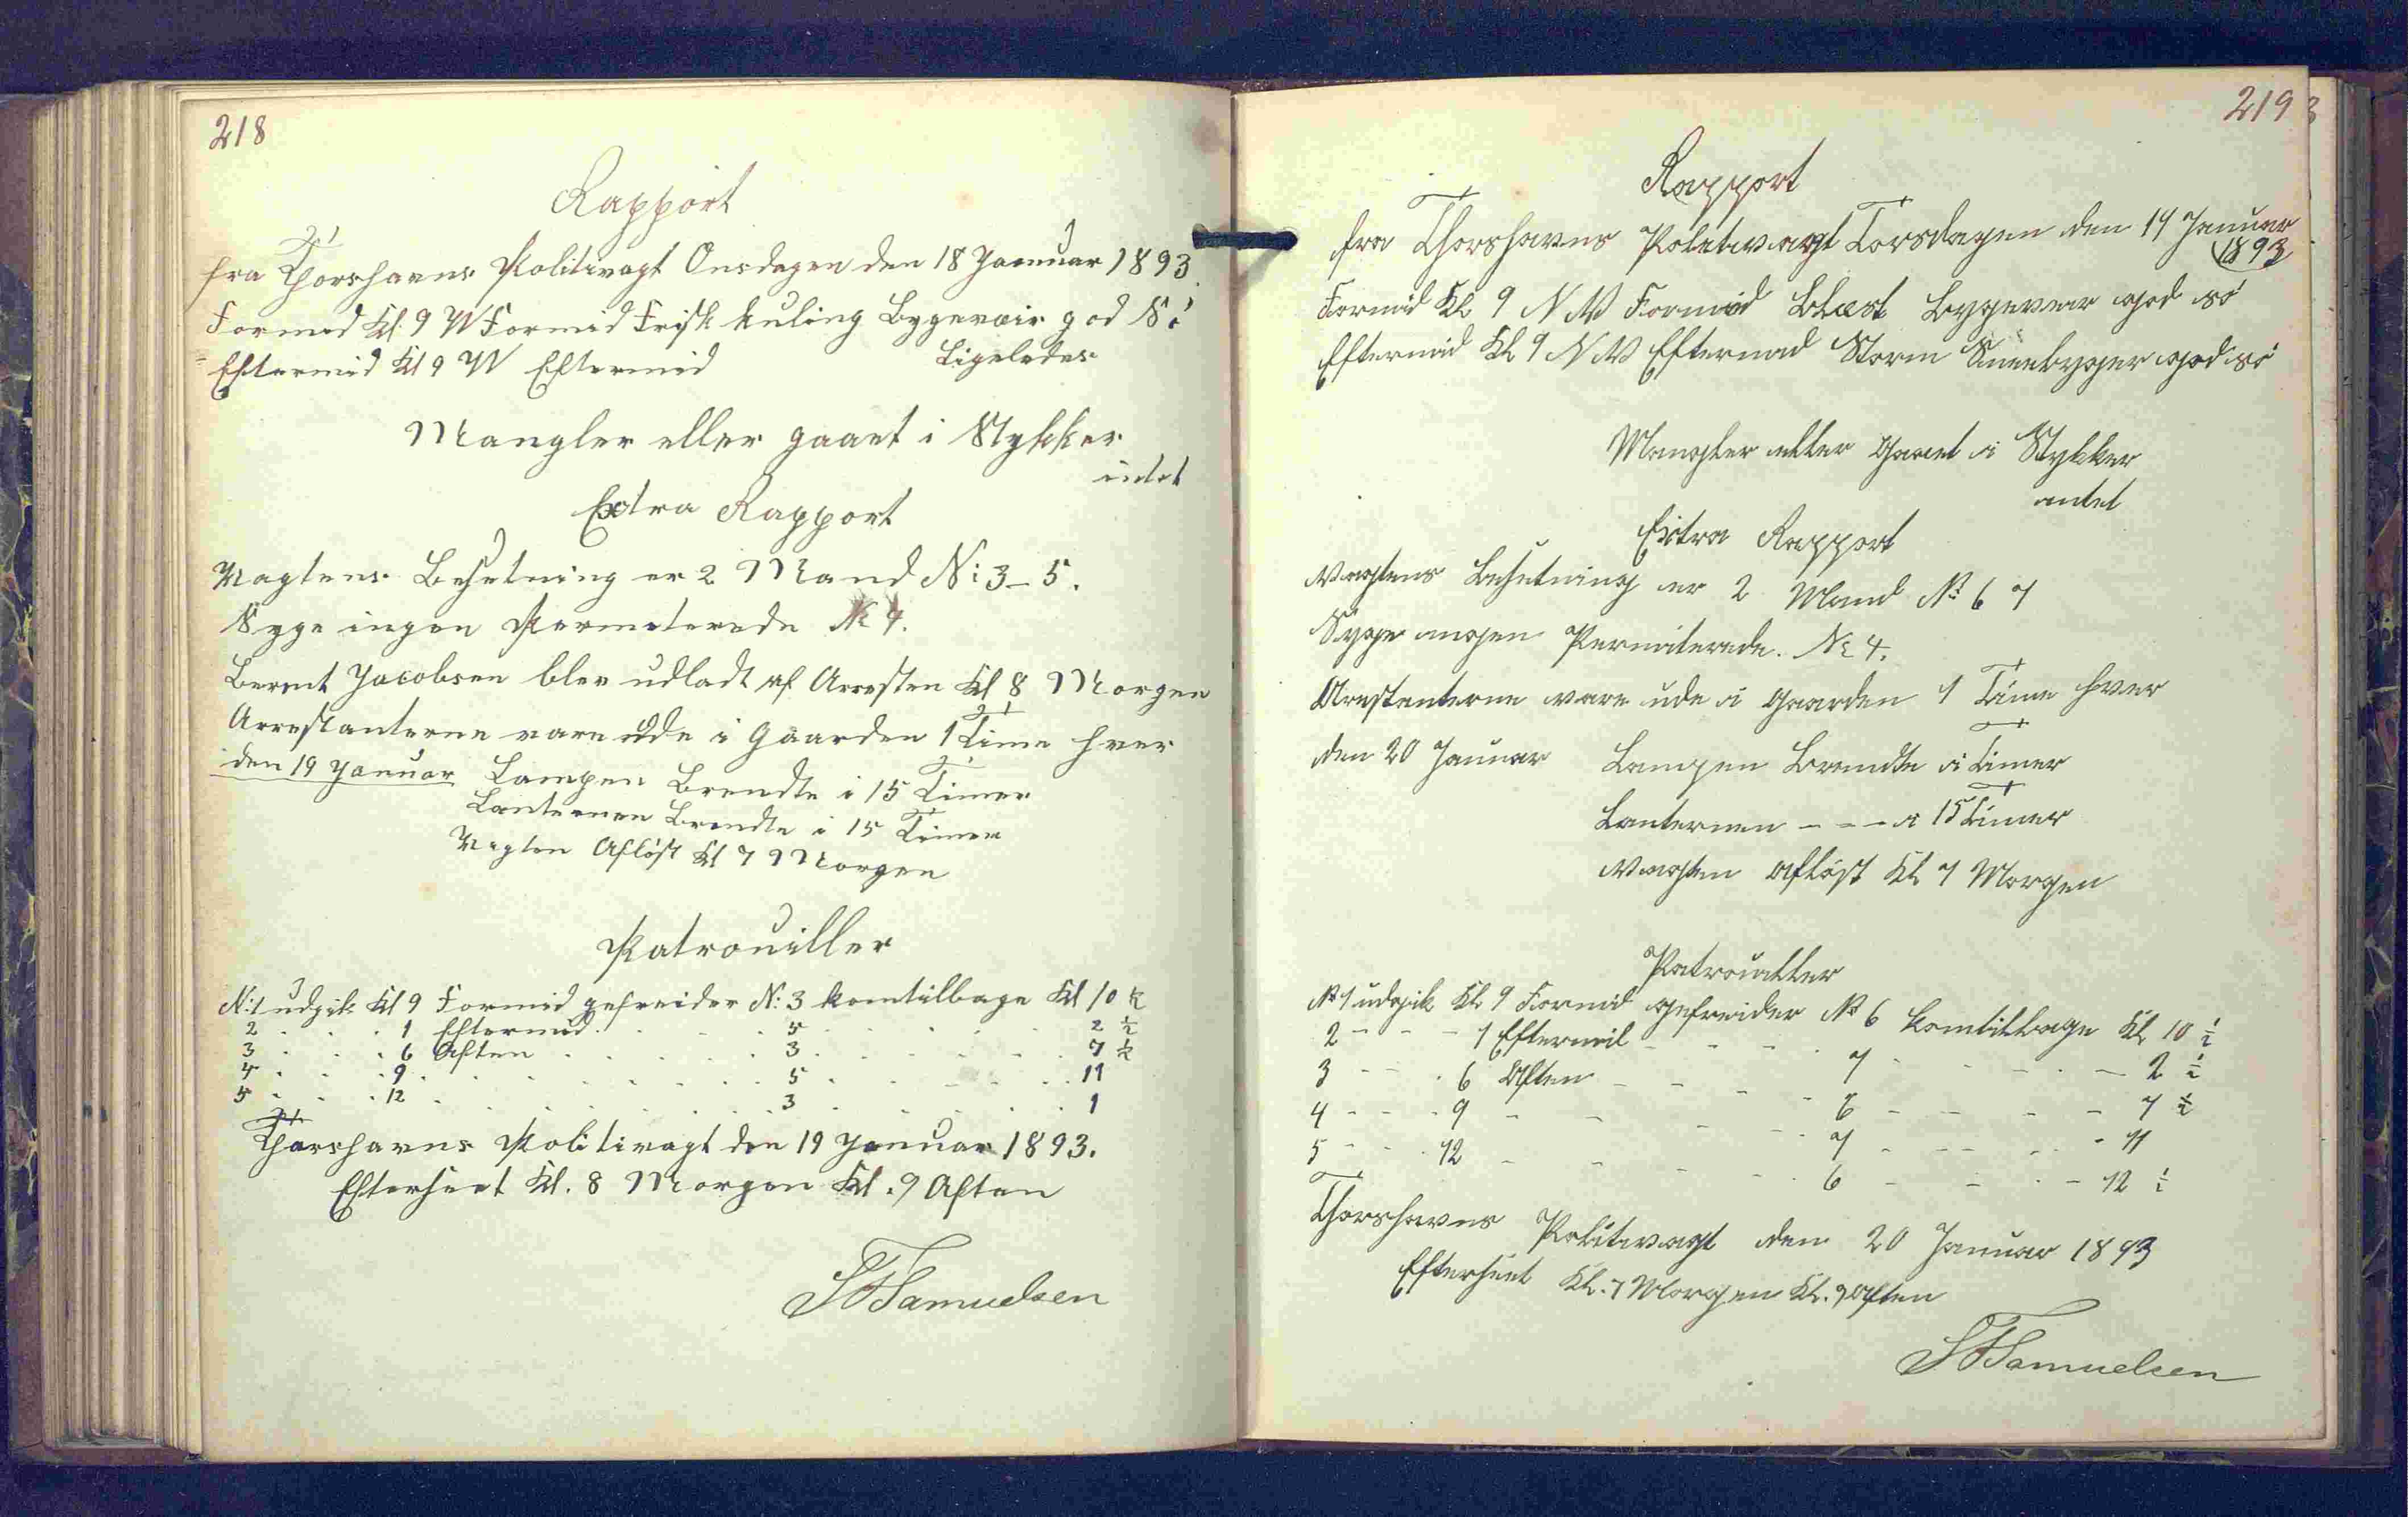 218
Rapport
fra Thorshavns Politivagt Onsdagen den 18 Januar 1893.
Formid Kl. 9 W Formid Frisk kuling Bygevair god Sö
Eftermid Kl 9 W Eftermid Ligeledes
Mangler eller gaaet i Stykker
intet
Extra Rapport
Vagtens Besetning er 2 Mand N: 3 - 5.
Syge ingen Permeterede N: 4.
Berent Jacobsen blev udladt af Arresten Kl 8 Morgen
Arrestanterne vare ude i Gaarden 1 Time hver
den 19 Januar Lampen Brendte i 15 Timer
Lanternen Brendte i 15 Timer
Vagten Aflöst Kl 7 Morgen
Patrouiller
N: 1 udgik Kl 9 Formid gefreider N: 3 komtilbage Kl 10 ½
2 . . . 1 Eftermid . . . 5 . . . 2 ½
3 . . . 6 Aften . . . 3 . . . 7 ½
4 . . . 9 . . . 5 . . . 11
5 . . . 12 . . . 3 . . . 1
Thorshavns Politivagt den 19 Januar 1893.
Efterseet Kl. 8 Morgen Kl. 9 Aften
Samuelsen
219
Rapport
fra Thorshavns Politivagt Torsdagen den 19 Januar
1893
Formid Kl 9 N W Formid Blæst Bygevear god sö
Eftermid Kl 9 N W Eftermad Storm Sneebyger god sö
Mangler eller Gaaet i Stykker
intet
Extra Rapport
Vagtens Besetning er 2 Mand N: 6 7
Syge ingen Permiterede. N: 4.
Arestanterne vare ude i Gaarden 1 Time hver
den 20 Januar Lampen Brendte i Timer
Lanternen - - - i 15 Timer
Vagten Aflöst Kl 7 Morgen
Patrouiller
N: 1 udgik Kl 9 Formid gefreider N: 6 komtilbage Kl 10 ½
2 - - - 1 Eftermil - - - 7 - - - 2 ½
3 - - - 6 Aften - - - 6 - - - 7 ½
4 - - - 9 - - - 7 - - - 11
5 - - - 12 - - - 6 - - - 12 ½
Thorshavns Politivagt den 20 Januar 1893
Efterseet Kl. 7 Morgen Kl. 9 Aften
Samuelsen